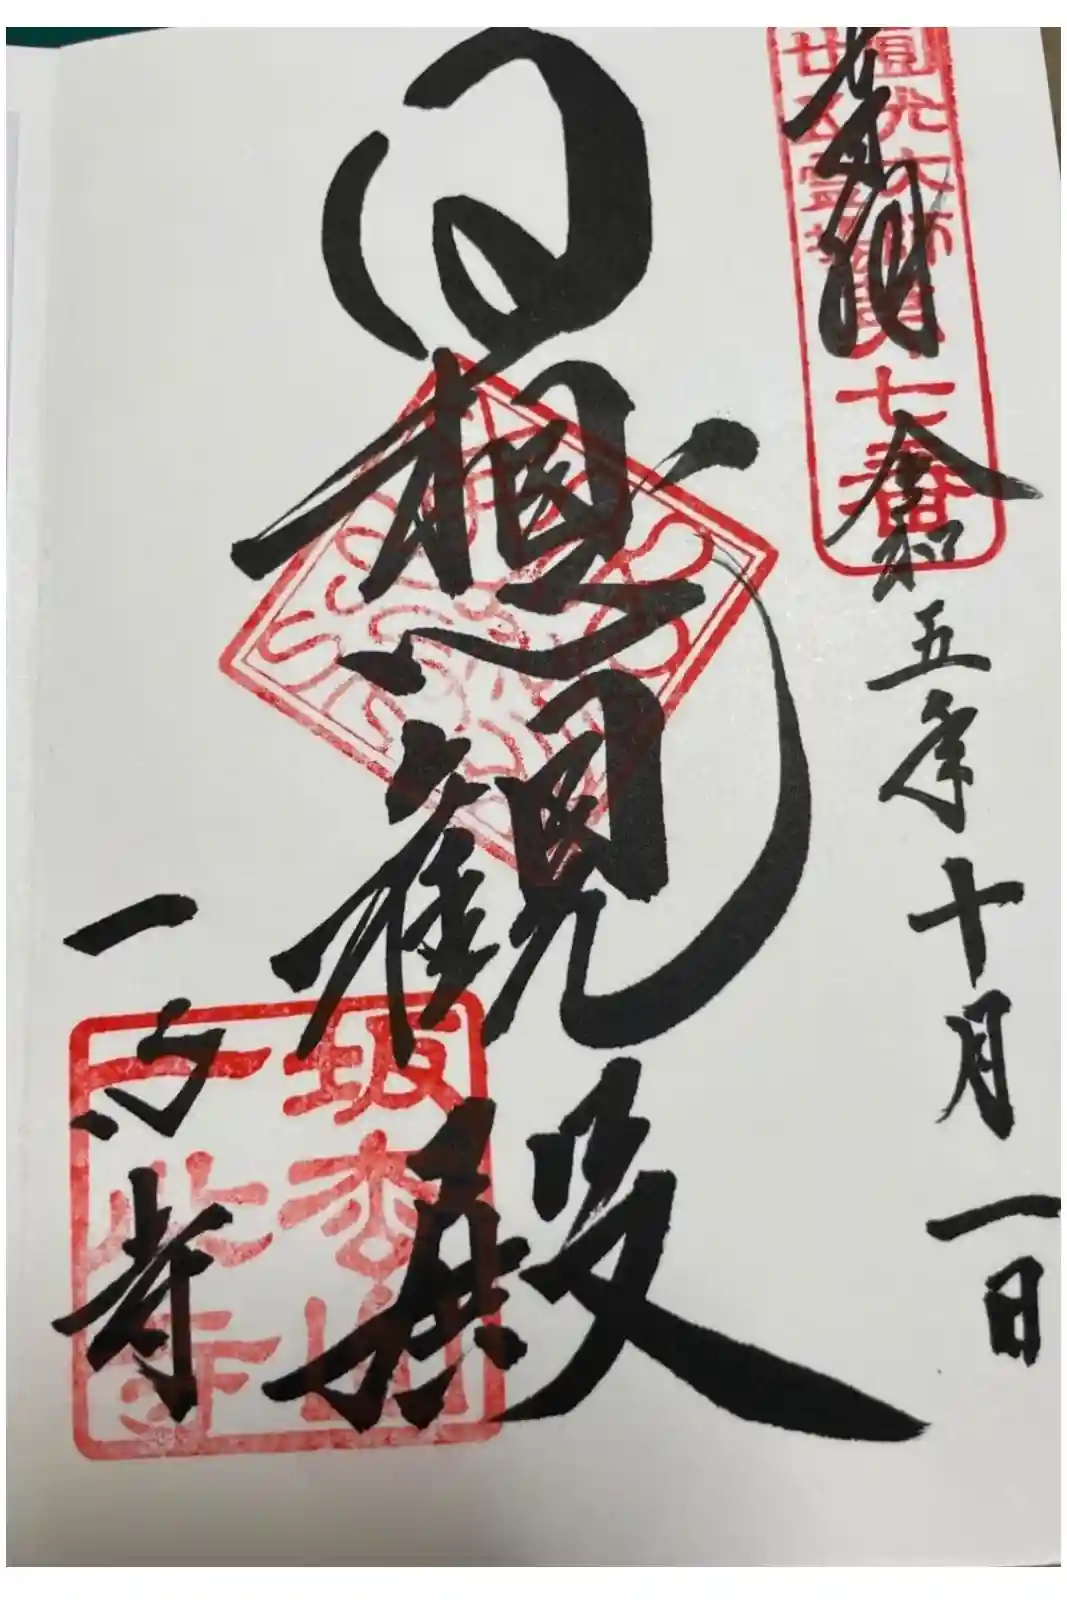 奉拝
令和五年十月一日
圓光大師
廿五霊場
第七番
日想観殿
一心寺
坂松山
一心寺